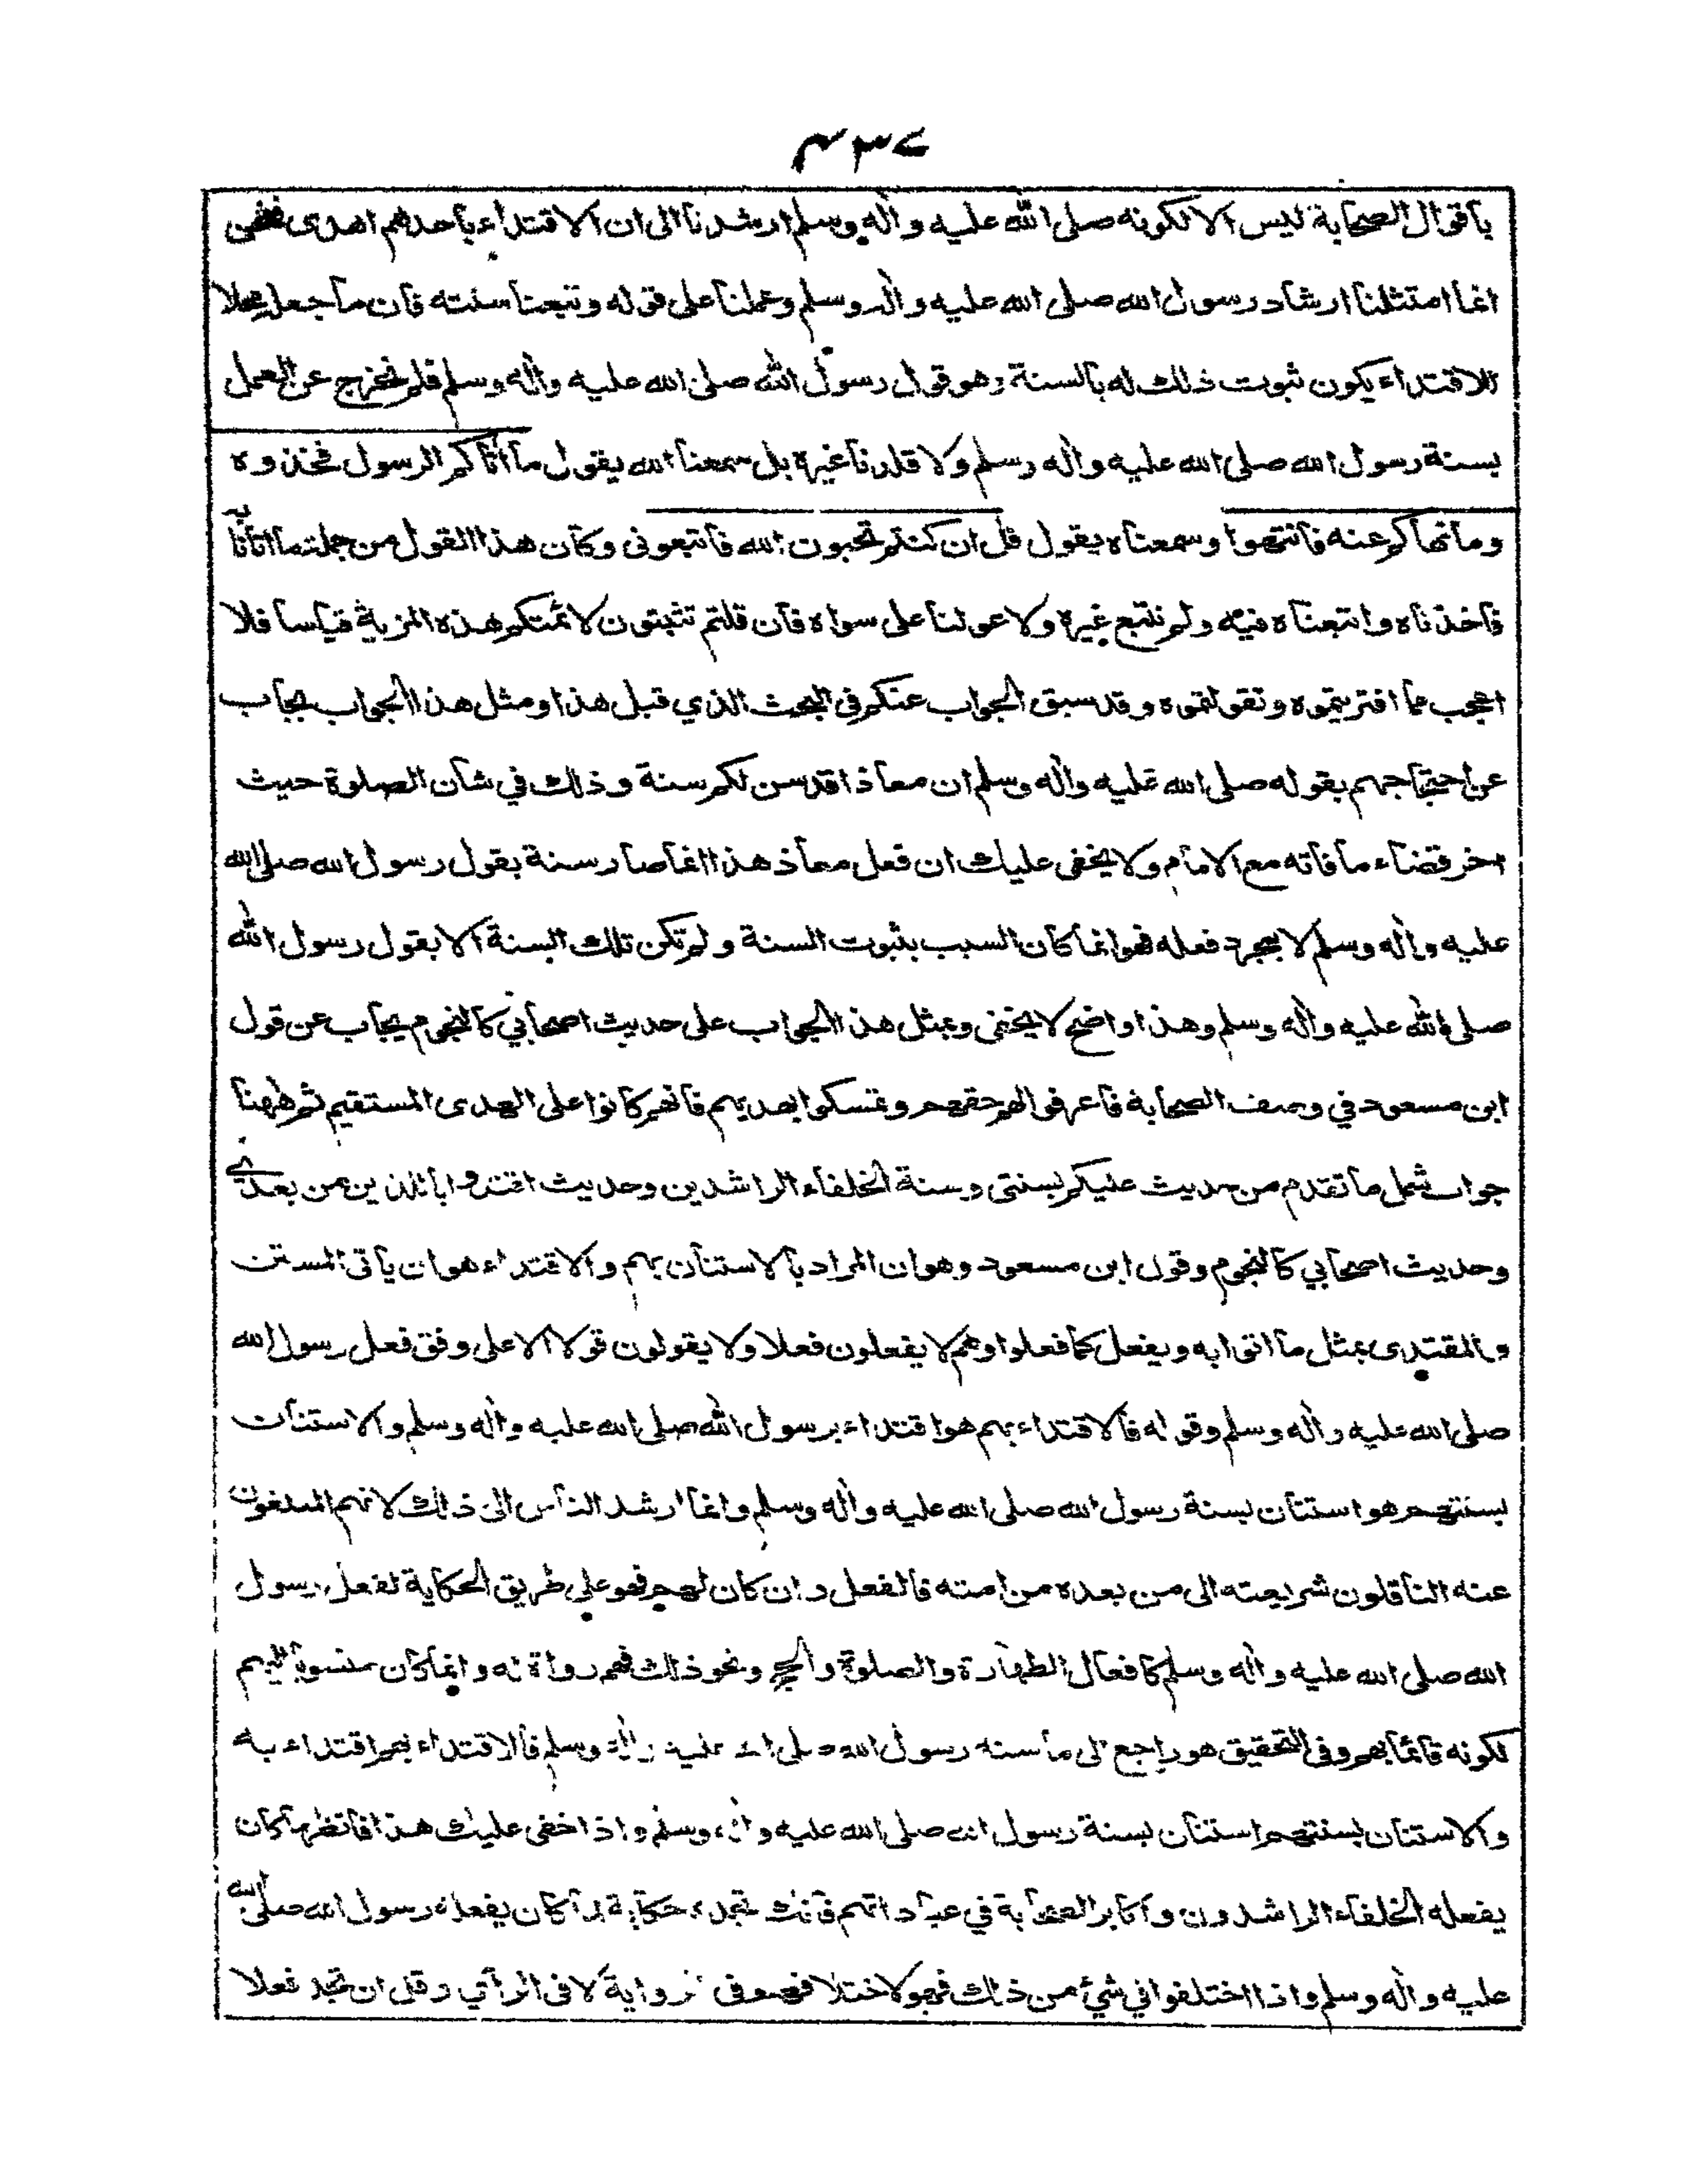 ٤٣٧
بأقوال الصحابة ليس الا لكونه صلى الله عليه وآله وسلم ارشدنا الى ان الاقتداء بأحدهم اهدى فنحن
انما امتثلنا ارشاد رسول الله صلى الله عليه وآله وسلم وعملنا على قوله وتبعنا سنته فان ما جعل محلا
للاقتداء يكون ثبوت ذلك له بالسنة وهو قول رسول الله صلى الله عليه وآله وسلم فلم نخرج عن العمل
بسنة رسول الله صلى الله عليه وآله وسلم ولا قلدنا غيره بل سمعنا الله يقول ما أتاكم الرسول فخذوه
وما نهاكم عنه فانتهوا وسمعناه يقول قل ان كنتم تحبون الله فاتبعوني وكان هذا القول من جملة ما اتانا به
فأخذناه واتبعناه فيه ولم نتبع غيره ولا عولنا على سواه فان قلتم تثبتون لائمتكم هذه المزية قياسا فلا
اعجب مما افتريتموه وتقولتموه وقد سبق الجواب عنكم في البحث الذي قبل هذا ومثل هذا الجواب يجاب
عن احتجاجهم بقوله صلى الله عليه وآله وسلم ان معاذا قد سن لكم سنة وذلك في شأن الصلوة حيث
اخر قضاء ما فاته مع الامام ولا يخفى عليك ان فعل معاذ هذا انما صار سنة بقول رسول الله صلى الله
عليه وآله وسلم لا بمجرد فعله فهو انما كان السبب بثبوت السنة ولم تكن تلك السنة الا بقول رسول الله
صلى الله عليه وآله وسلم وهذا واضح لا يخفى وبمثل هذا الجواب على حديث اصحابي كالنجوم يجاب عن قول
ابن مسعود في وصف الصحابة فاعرفوا لهم حقهم وتمسكوا بهديهم فانهم كانوا على الهدى المستقيم ثم ههنا
جواب شمل ما تقدم من حديث عليكم بسنتي وسنة الخلفاء الراشدين وحديث اقتدوا بالذين من بعدي
وحديث اصحابي كالنجوم وقول ابن مسعود وهو ان المراد بالاستنان بهم والاقتداء هو ان يأتي المستن
والمقتدى بمثل ما اتوا به ويفعل كما فعلوا وهم لا يفعلون فعلا ولا يقولون قولا الا على وفق فعل رسول الله
صلى الله عليه وآله وسلم وقوله فالاقتداء بهم هو اقتداء برسول الله صلى الله عليه وآله وسلم والاستنان
بسنتهم هو استنان بسنة رسول الله صلى الله عليه وآله وسلم وانما ارشد الناس الى ذلك لانهم المبلغون
عنه الناقلون شريعته الى من بعده من امته فالفعل وان كان لهم فهو على طريق الحكاية لفعل رسول
الله صلى الله عليه وآله وسلم كافعال الطهارة والصلوة والحج ونحو ذلك فهم رواة له وانما كان منسوبا اليهم
لكونه قائما بهم وفي التحقيق هو راجع الى ما سنه رسول الله صلى الله عليه وآله وسلم فالاقتداء بهم اقتداء به
والاستنان بسنتهم استنان بسنة رسول الله صلى الله عليه وآله وسلم واذا خفي عليك هذا فانظر ما كان
يفعله الخلفاء الراشدون وأكابر الصحابة في عباداتهم فانك تجده حكاية لما كان يفعله رسول الله صلى الله
عليه وآله وسلم واذا اختلفوا في شئ من ذلك فهو لاختلافهم في الرواية لا في الرأي وقل ان تجد فعلا